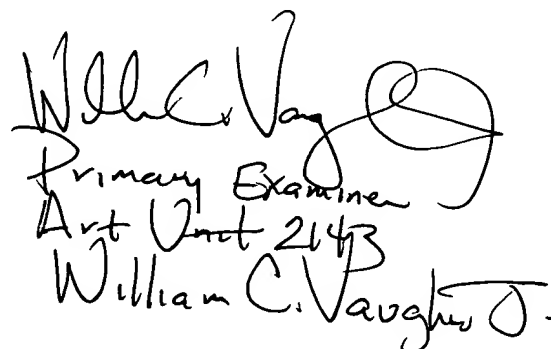 Willi C. Vaug
Primary Examiner
Art Unit 2143
William C. Vaughn Jr.